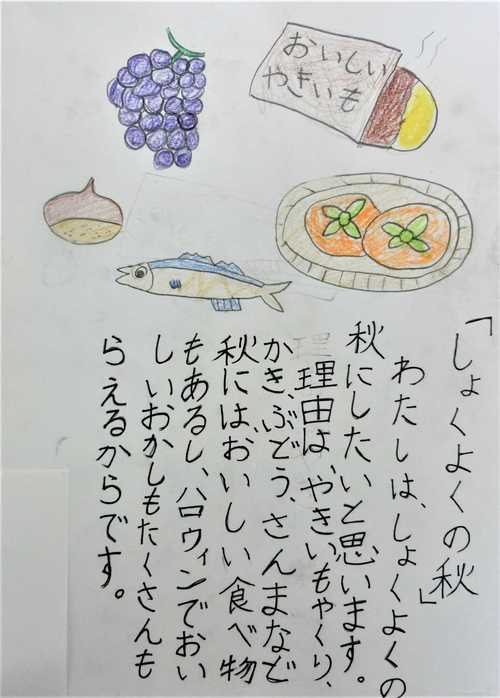 おいしい
やきいも
「しょくよくの秋」
わたしは、しょくよくの
秋にしたいと思います。
理由は、やきいもやくり、
かき、ぶどう、さんまなど
秋には、おいしい食べ物
もあるし、ハロウィンでおい
しいおかしもたくさんも
らえるからです。